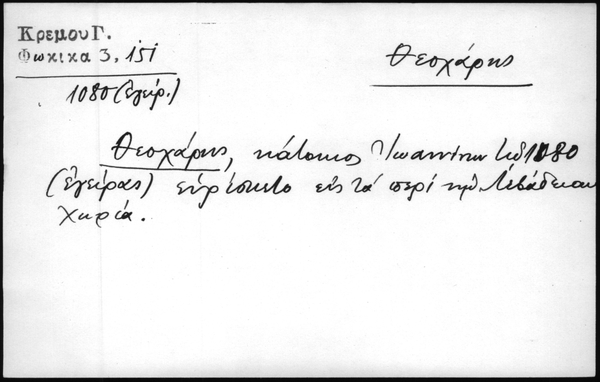 Κρεμου Γ.
Φωκικα 3, 151
Θεοχάρης
1080 (ἐγείρ.)
Θεοχάρης, κάτοικος Ἰωαννίνων τῷ 1080
(ἐγείρας) εὑρίσκετο εἰς τά περί τήν Λεβάδειαν
χωρία.